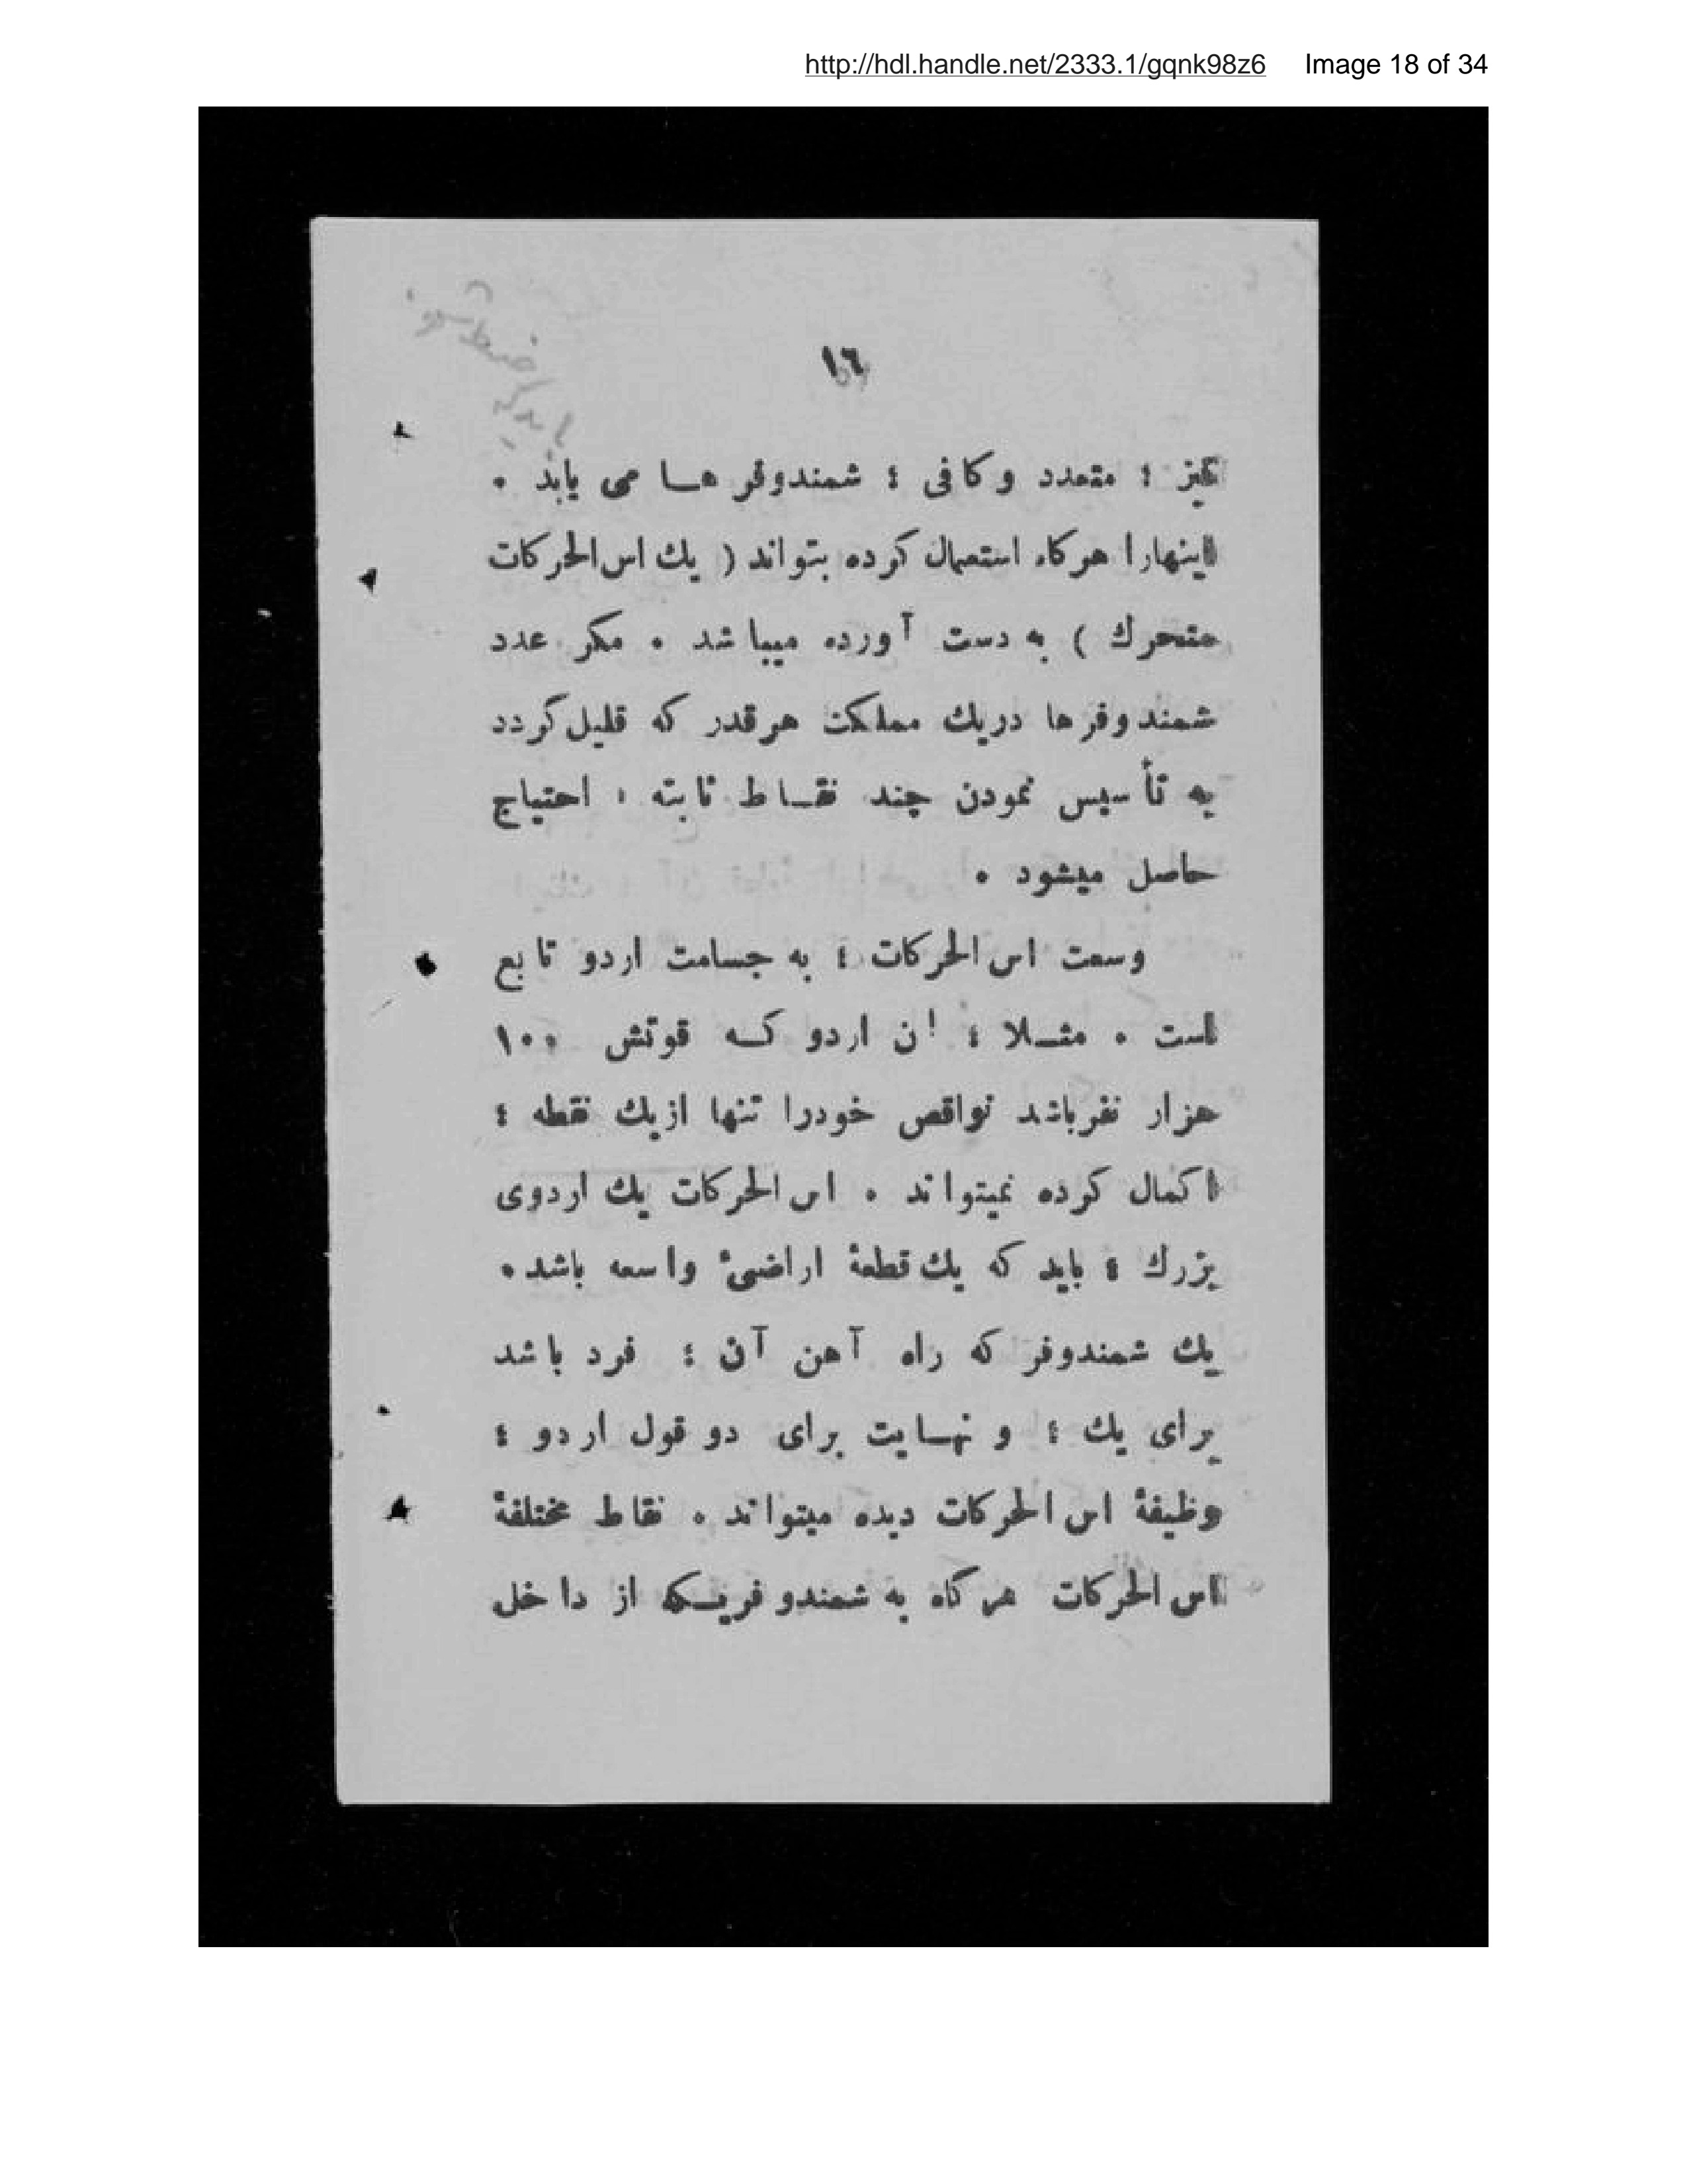 http://hdl.handle.net/2333.1/gqnk98z6 Image 18 of 34
١٦
نیز ؛ متعدد وکافی ؛ شمندوفر هـا می یابد ٠
اینهارا هرکاه استعمال کرده بتواند ( یك اس الحرکات
متحرك ) به دست آورده میباشد ٠ مکر عدد
شمندوفرها دریك مملکت هرقدر که قلیل کردد
به تأسیس نمودن چند نقـاط ثابته ؛ احتیاج
حاصل میشود ٠
وسعت اس الحرکات ؛ به جسامت اردو تابع
است ٠ مثـلا ؛ ان اردو کـه قوتش ١٠٠
هزار نفرباشد نواقص خودرا تنها ازیك نقطه ؛
اکمال کرده نمیتواند ٠ اس الحرکات یك اردوی
بزرك ؛ باید که یك قطعهٔ اراضیٔ واسعه باشد ٠
یك شمندوفر که راه آهن آن ؛ فرد باشد
برای یك ؛ و نهـایت برای دو قول اردو ؛
وظیفهٔ اس الحرکات دیده میتواند ٠ نقاط مختلفهٔ
اس الحرکات هرکاه به شمندوفریـکه از داخل